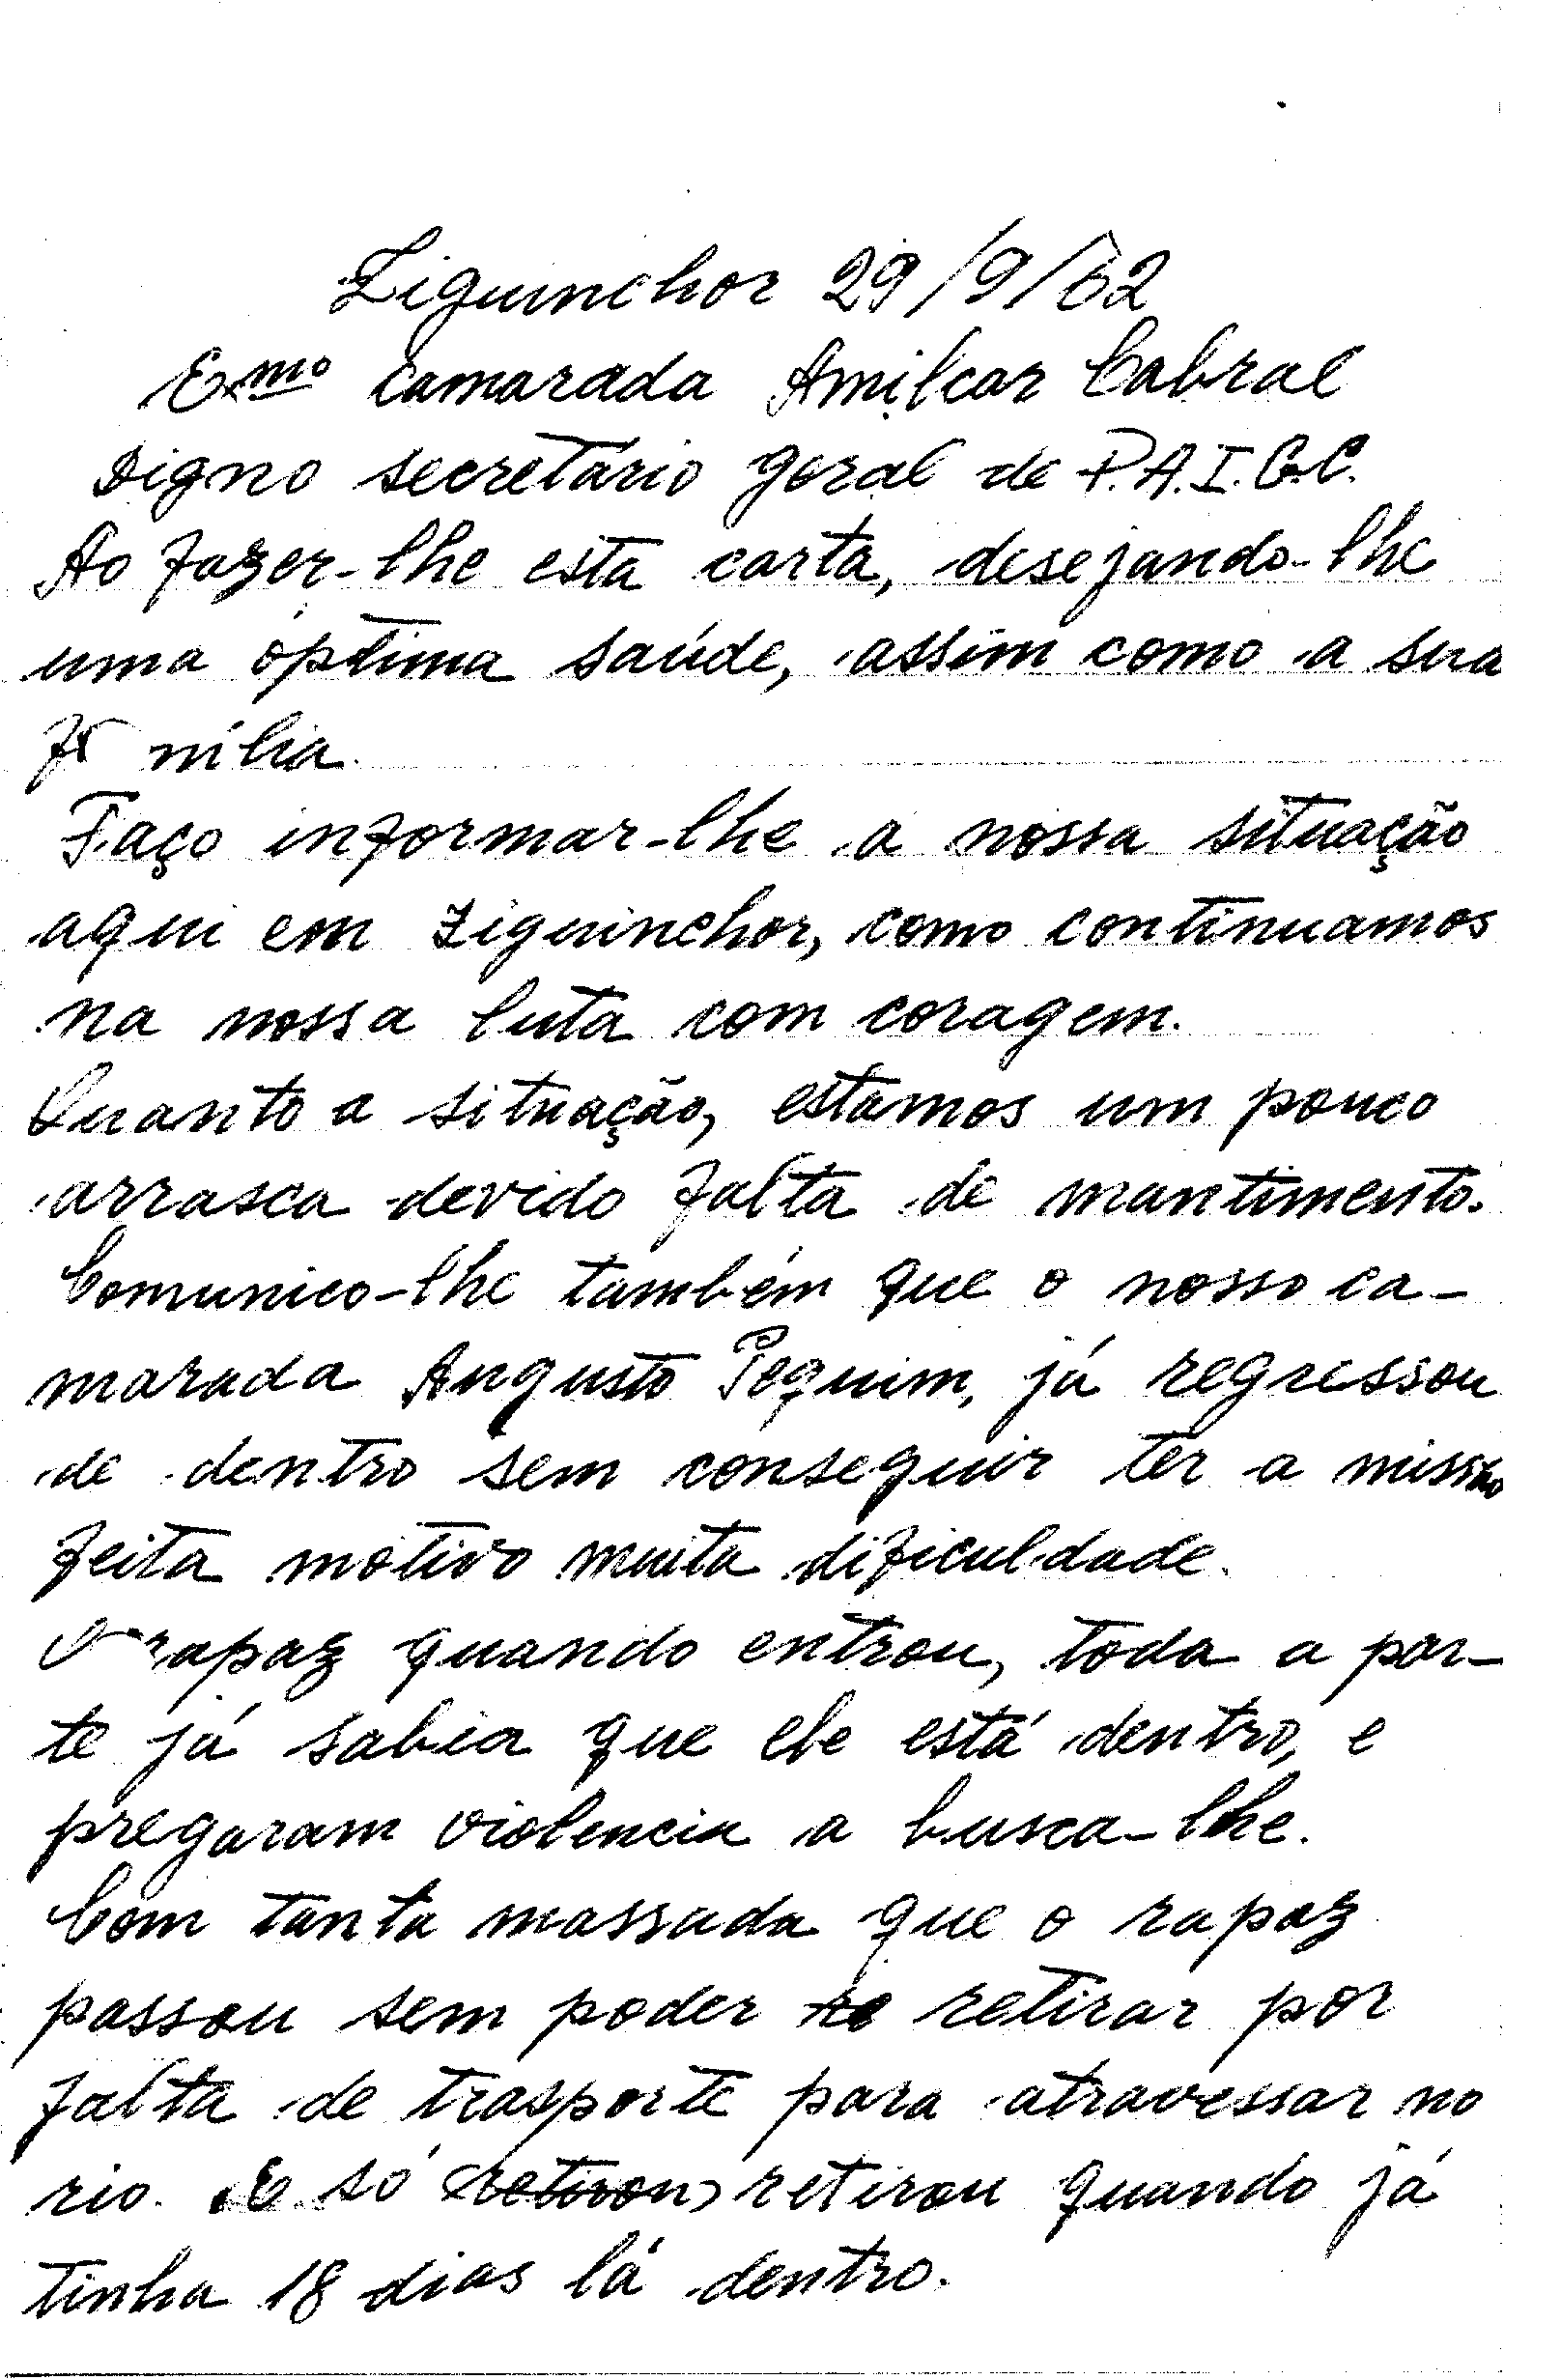 Ziguinchor 29/9/62
Exmo camarada Amilcar Cabral
Digno secretário geral de P.A.I.G.C.
Ao fazer-lhe esta carta, desejando-lhe
uma óptima saúde, assim como a sua

Faço informar-lhe a nossa situação
aqui em Ziguinchor, como continuamos
na nossa luta com coragem.
Quanto a situação, estamos um pouco
arrasca devido falta de mantimento.
Comunico-lhe também que o nosso ca-
marada Augusto Pequim, já regressou
de dentro sem conseguir ter a missão
feita motivo muita dificuldade.
O rapaz quando entrou, toda a par-
te já sabia que ele está dentro, e
pregaram violencia a busca-lhe.
Com tanta massada que o rapaz
passou sem poder re retirar por
falta de trasporte para atravessar no
rio. E só retirou retirou quando já
tinha 18 dias lá dentro.